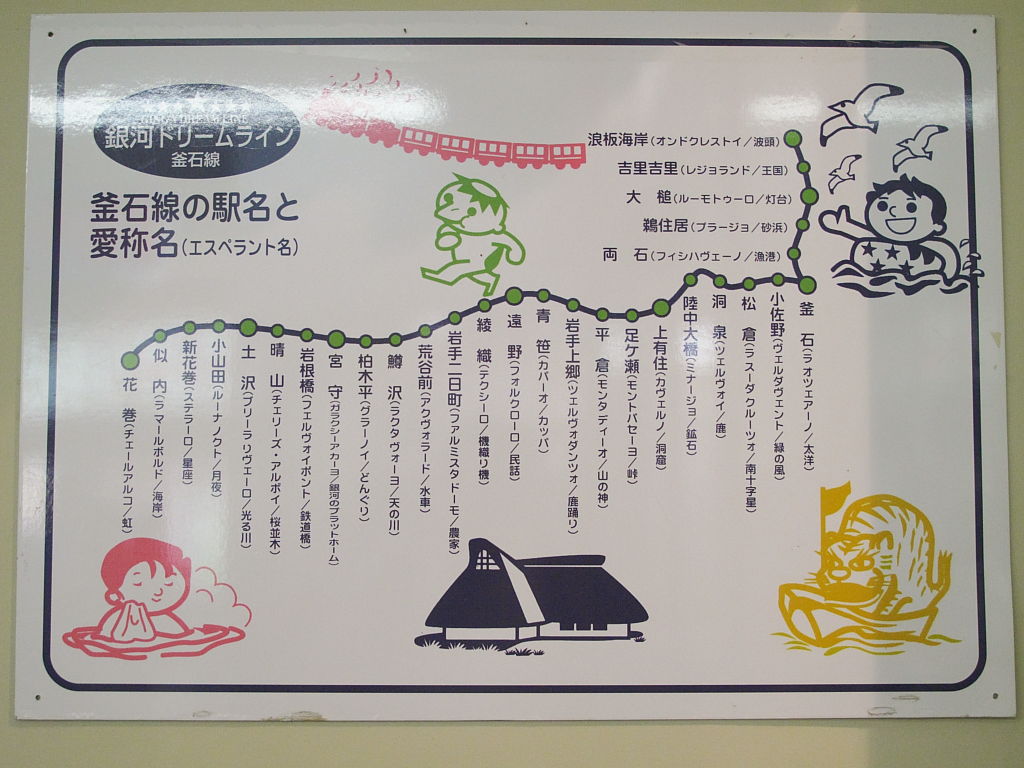 GINGA DREAM LINE
銀河ドリームライン
釜石線
釜石線の駅名と
愛称名(エスペラント名)
浪板海岸(オンドクレストイ/波頭)
吉里吉里(レジョランド/王国)
大　槌(ルーモトゥーロ/灯台)
鵜住居(プラージョ/砂浜)
両　石(フィシハヴェーノ/漁港)
花　巻(チェールアルコ/虹)
似　内(ラ マールボルド/海岸)
新花巻(ステラーロ/星座)
小山田(ルーナ ノクト/月夜)
土　沢(ブリーラ リヴェーロ/光る川)
晴　山(チェリーズ・アルボイ/桜並木)
岩根橋(フェルヴォイポント/鉄道橋)
宮　守(ガラクシーア カーヨ/銀河のプラットホーム)
柏木平(グラーノイ/どんぐり)
鱒　沢(ラクタヴォーヨ/天の川)
荒谷前(アクヴォラード/水車)
岩手二日町(ファルミスタ ドーモ/農家)
綾　織(テクシーロ/機織り機)
遠　野(フォルクローロ/民話)
青　笹(カパーオ/カッパ)
岩手上郷(ツェルヴォダンツォ/鹿踊り)
平　倉(モンタ ディーオ/山の神)
足ケ瀬(モントパセーヨ/峠)
上有住(カヴェルノ/洞窟)
陸中大橋(ミナージョ/鉱石)
洞　泉(ツェルヴォイ/鹿)
松　倉(ラ スーダ クルーツォ/南十字星)
小佐野(ヴェルダ ヴェント/緑の風)
釜　石(ラ オツェアーノ/大洋)